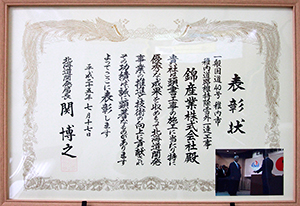 表彰状
一般国道40号 稚内市
稚内道路維持除雪外一連工事
錦産業株式会社殿
貴社は頭書工事の施工に当たり特に
優秀な成績を収めもって北海道開発
事業の推進と技術の向上に貢献され
その功績は誠に顕著なものがあります
よってここに表彰します
平成二十五年七月十七日
北海道開発局長 関 博之